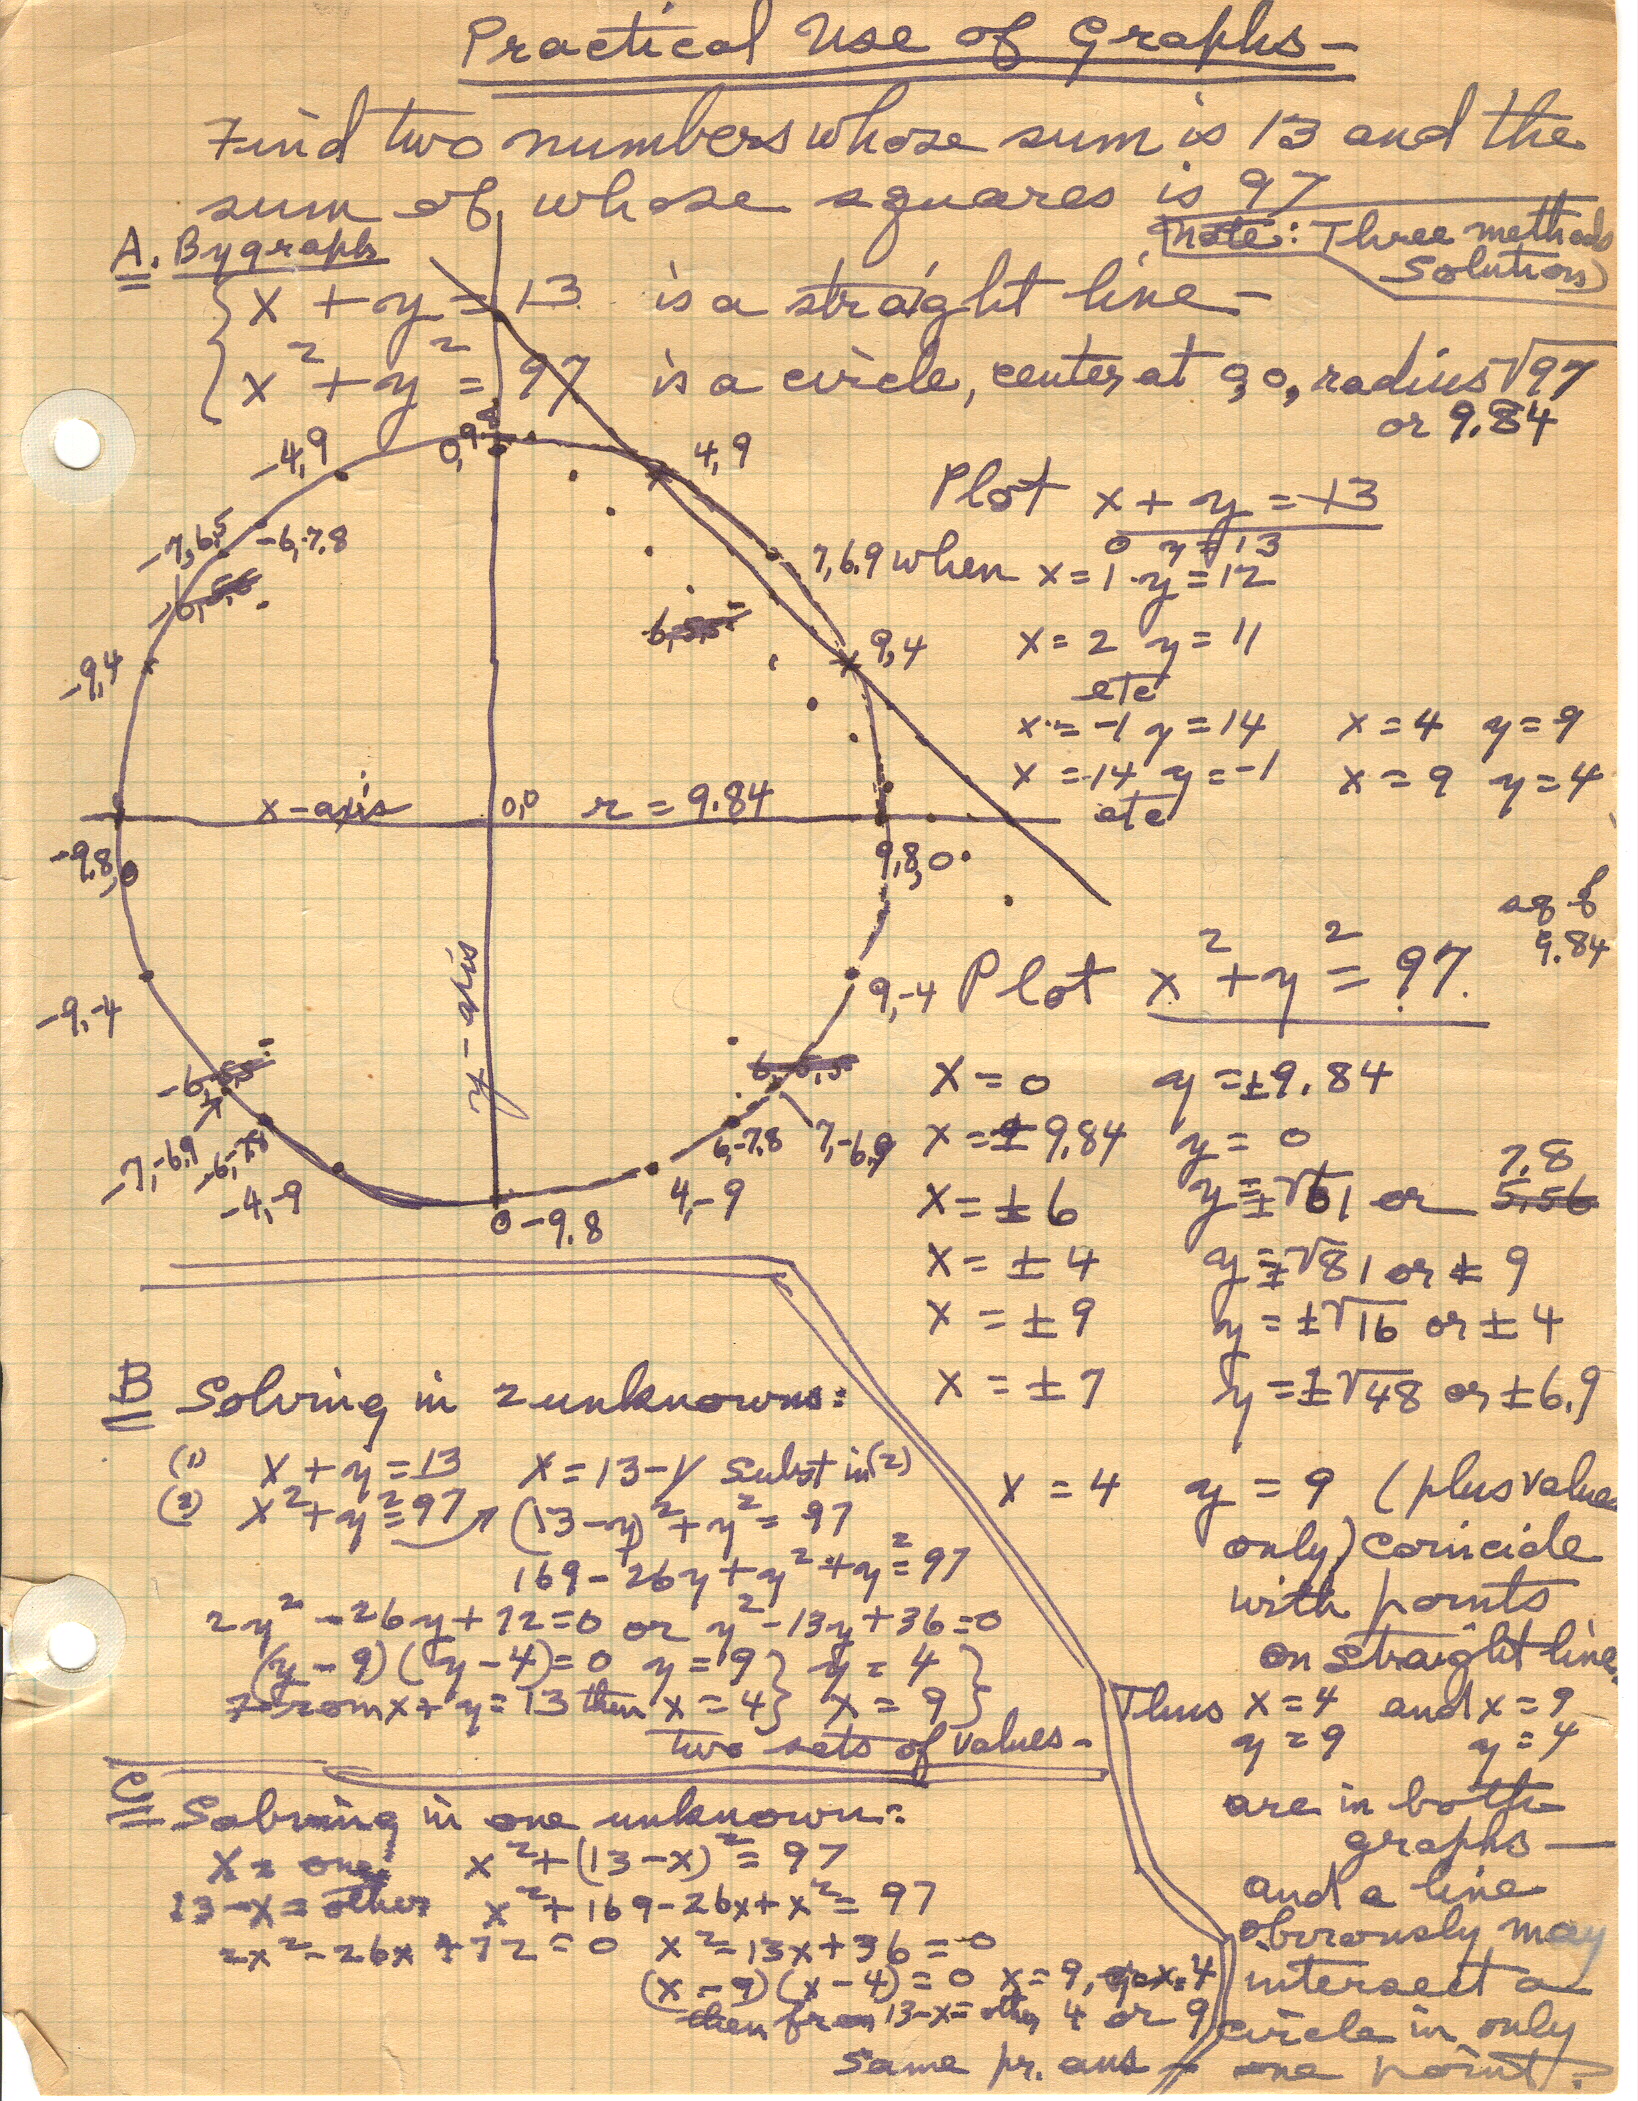 Practical Use of Graphs-
Find two numbers whose sum is 13 and the
sum of whose squares is 97
Note: Three methods
Solution)
A. By graph
x + y = 13 is a straight line-
x² + y² = 97 is a circle, center at 0,0, radius √97
or 9.84
0,9.8
-4,9
4,9
-7,6.5
-6,7.8
7,6.9
-9,4
9,4
x-axis
0,0
r = 9.84
-9.8,0
9.8,0
y-axis
-9,-4
9,-4
-6,-5.5
6,-5.5
-7,-6.9
-6,-7.8
6,-7.8
7,-6.9
-4,-9
4,-9
0-9.8
Plot x + y = 13
0 y = 13
when x = 1 y = 12
x = 2 y = 11
etc
x = -1 y = 14 x = 4 y = 9
x = 14 y = -1 x = 9 y = 4
etc
sq of
9.84
Plot x² + y² = 97.
x = 0 y = ±9.84
x = ± 9.84 y = 0
7.8
x = ± 6 y = ±√61 or 5.56
x = ± 4 y = ±√81 or ± 9
x = ± 9 y = ±√16 or ± 4
x = ± 7 y = ±√48 or ±6.9
x = 4 y = 9 (plus values
only) coincide
with points
on straight line.
Thus x = 4 and x = 9
y = 9 y = 4
are in both
graphs—
and a line
obviously may
intersect a
circle in only
one point.
B Solving in 2 unknowns:
(1) x + y = 13 x = 13-y Subst in (2)
(2) x² + y² = 97 (13-y)² + y² = 97
169-26y+y²+y²=97
2y²-26y+72=0 or y²-13y+36=0
(y-9)(y-4)=0 y=9} y=4}
From x+y=13 then x=4} x=9}
Two sets of values-
C Solving in one unknown:
X = one x²+(13-x)²=97
13-x = other x²+169-26x+x²=97
2x²-26x+72=0 x²-13x+36=0
(x-9)(x-4)=0 x=9, or x=4
then from 13-x=other 4 or 9
Same pr. ans